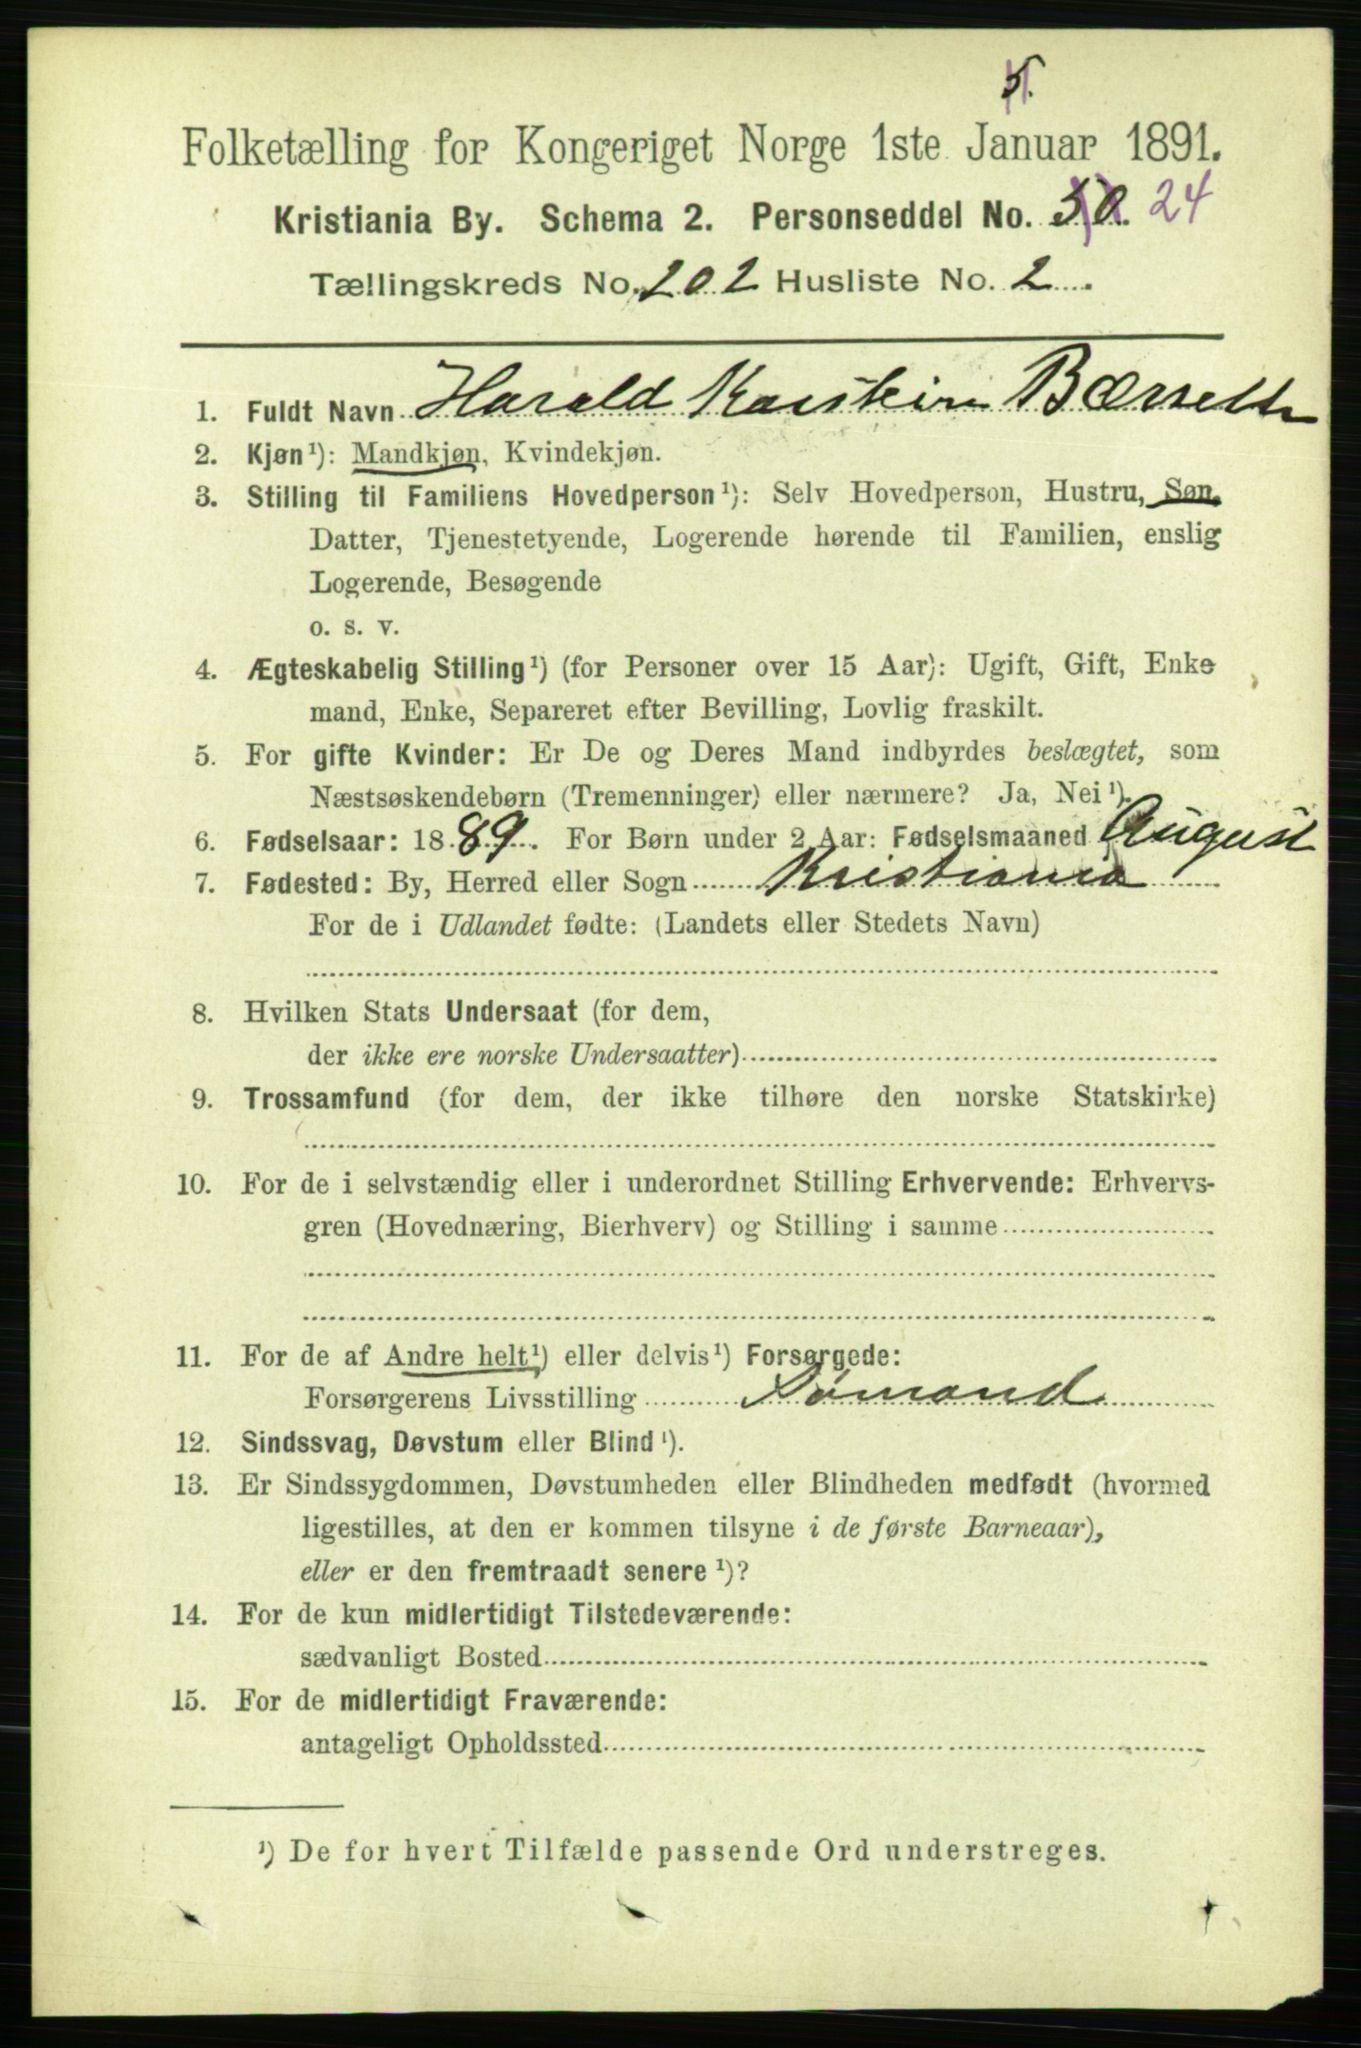 5.
Folketælling for Kongeriget Norge 1ste Januar 1891.
Kristiania By. Schema 2. Personseddel No. 50. 24
Tællingskreds No. 202 Husliste No. 2
1. Fuldt Navn Harald Karstein
2. Kjøn¹): Mandkjøn, Kvindekjøn.
3. Stilling til Familiens Hovedperson¹): Selv Hovedperson, Hustru, Søn,
Datter, Tjenestetyende, Logerende hørende til Familien, enslig
Logerende, Besøgende
o. s. v.
4. Ægteskabelig Stilling¹) (for Personer over 15 Aar): Ugift, Gift, Enke-
mand, Enke, Separeret efter Bevilling, Lovlig fraskilt.
5. For gifte Kvinder: Er De og Deres Mand indbyrdes beslægtet, som
Næstsøskendebørn (Tremenninger) eller nærmere? Ja, Nei¹).
6. Fødselsaar: 1889. For Børn under 2 Aar: Fødselsmaaned August
7. Fødested: By, Herred eller Sogn Kristiania
For de i Udlandet fødte: (Landets eller Stedets Navn)
8. Hvilken Stats Undersaat (for dem,
der ikke ere norske Undersaatter)
9. Trossamfund (for dem, der ikke tilhøre den norske Statskirke)
10. For de i selvstændig eller i underordnet Stilling Erhvervende: Erhvervs-
gren (Hovednæring, Bierhverv) og Stilling i samme
11. For de af Andre helt¹) eller delvis¹) Forsørgede:
Forsørgerens Livsstilling Sømand
12. Sindssvag, Døvstum eller Blind¹).
13. Er Sindssygdommen, Døvstumheden eller Blindheden medfødt (hvormed
ligestilles, at den er kommen tilsyne i de første Barneaar),
eller er den fremtraadt senere¹)?
14. For de kun midlertidigt Tilstedeværende:
sædvanligt Bosted
15. For de midlertidigt Fraværende:
antageligt Opholdssted
¹) De for hvert Tilfælde passende Ord understreges.